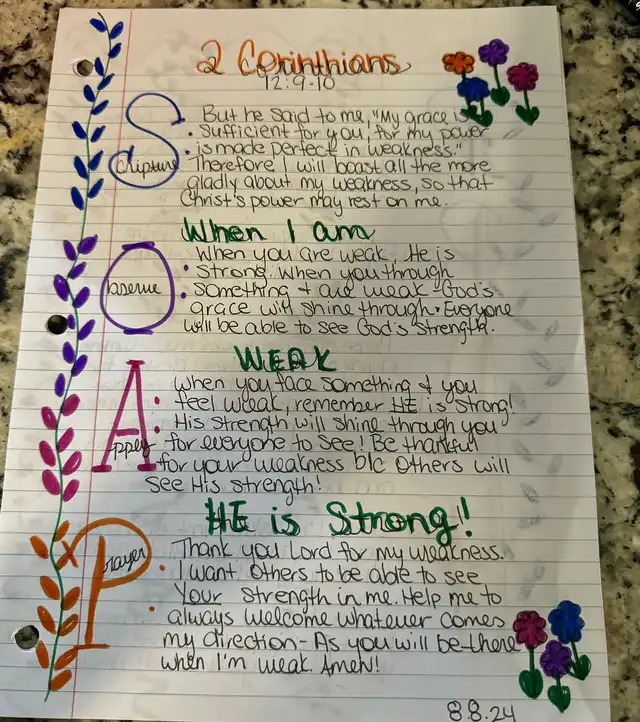 2 Corinthians
12:9-10
Scripture:
But he said to me, "My grace is
sufficient for you, for my power
is made perfect in weakness."
Therefore I will boast all the more
gladly about my weakness, so that
Christ's power may rest on me.
When I am
Observe:
When you are weak, He is
strong. When you through
something & are weak - God's
grace will shine through. Everyone
will be able to see God's strength.
WEAK
Apply:
When you face something & you
feel weak, remember HE is strong!
His strength will shine through you
for everyone to see! Be thankful
for your weakness b/c others will
see His strength!
HE is Strong!
Prayer:
Thank you Lord for my weakness.
I want others to be able to see
Your strength in me. Help me to
always welcome whatever comes
my direction - As you will be there
when I'm weak. Amen!
8.8.24